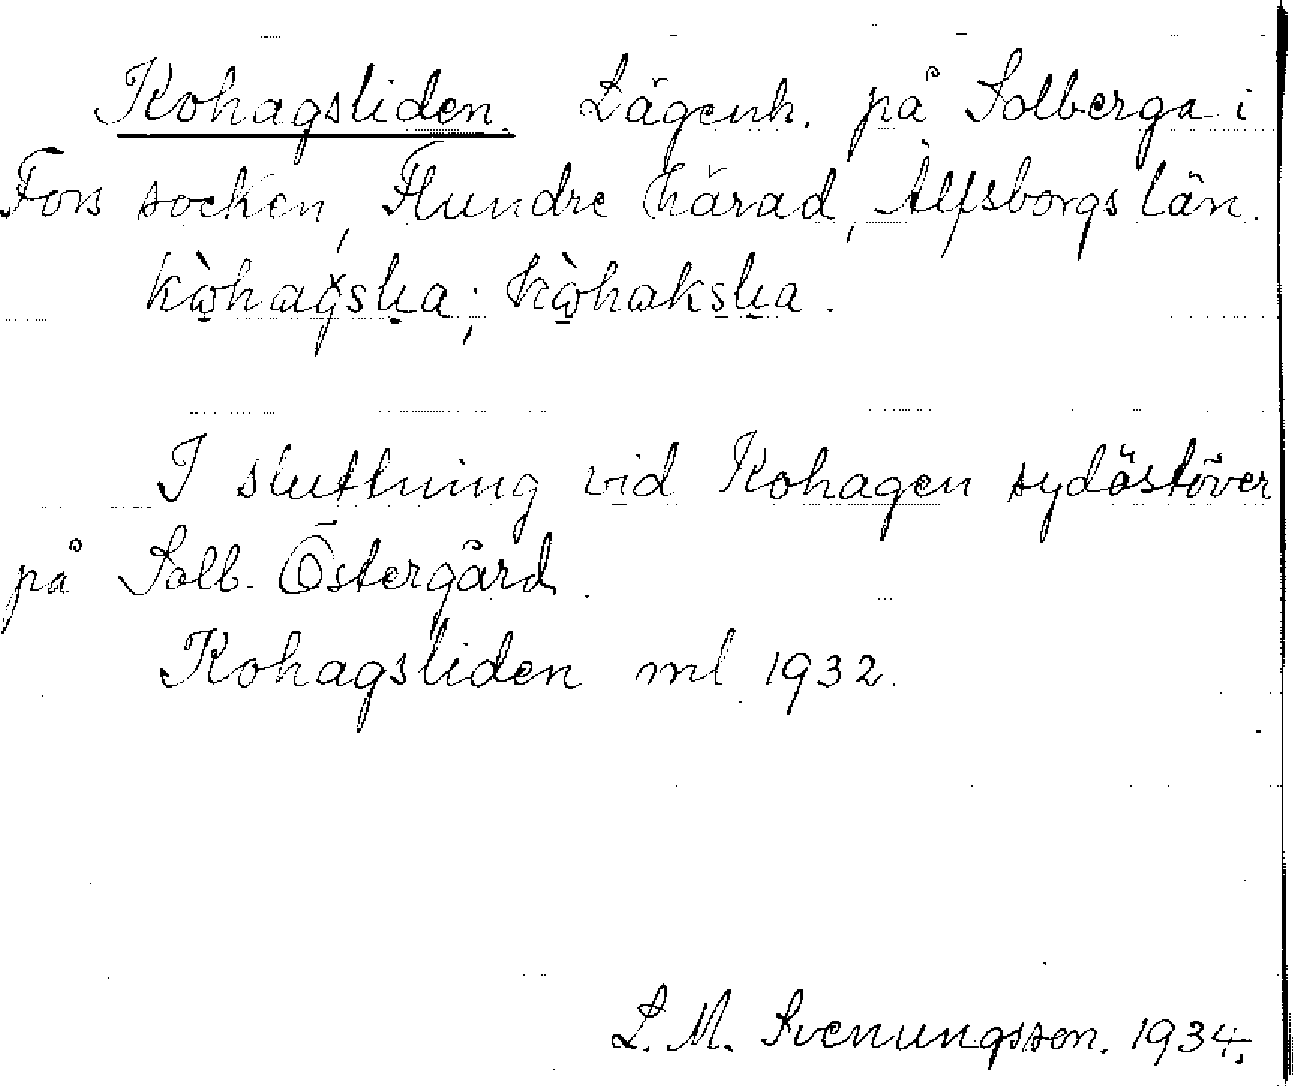 Kohagsliden. Lägenh. på Solberga i
Fors socken, Flundre härad, Älfsborgs län.

I sluttning vid Kohagen sydöstöver
på Solb. Östergård.
Kohagsliden ml 1932.
L. M. Svenungsson. 1934.